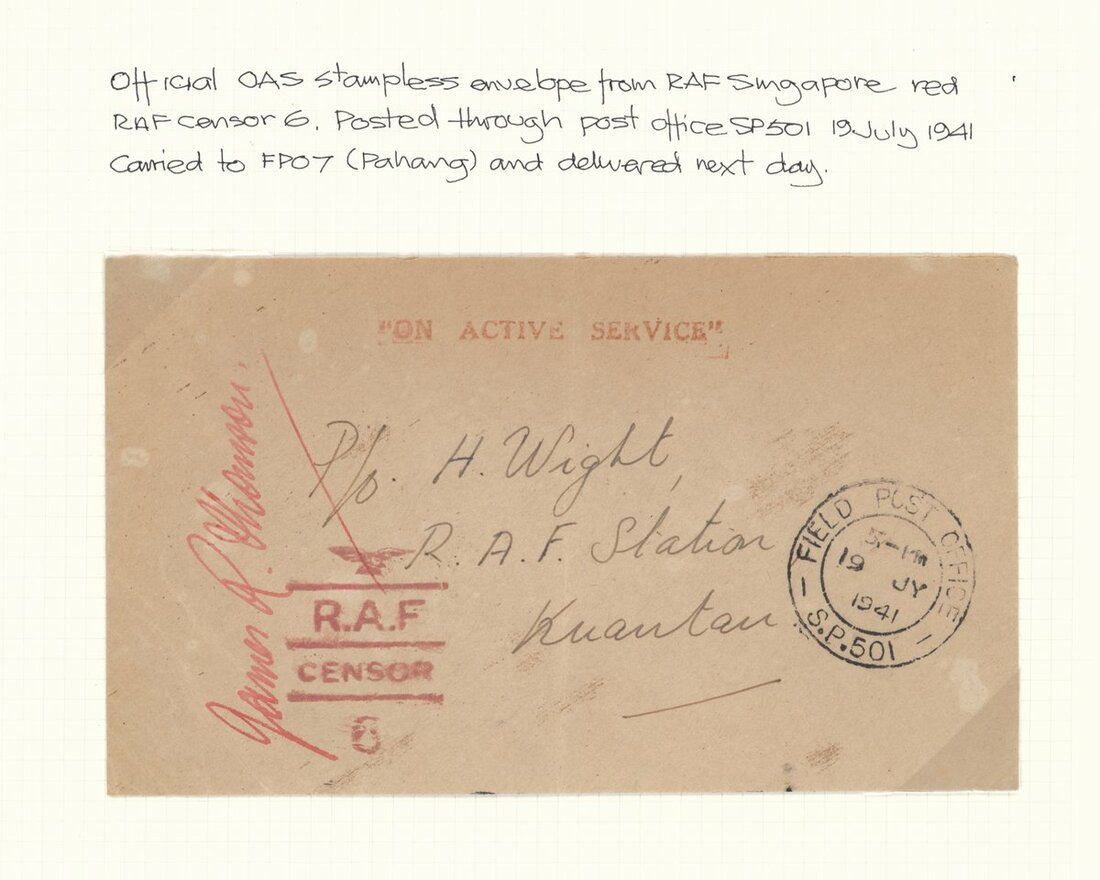 Official OAS stampless envelope from RAF Singapore red
RAF censor 6. Posted through post office SP501 19 July 1941
Carried to FPO7 (Pahang) and delivered next day.
"ON ACTIVE SERVICE"
P/o. H. Wight,
R. A. F. Station
Kuantan
James R. Thomson.
R.A.F
CENSOR
6
FIELD POST OFFICE
5-PM
19 JY
1941
S.P.501